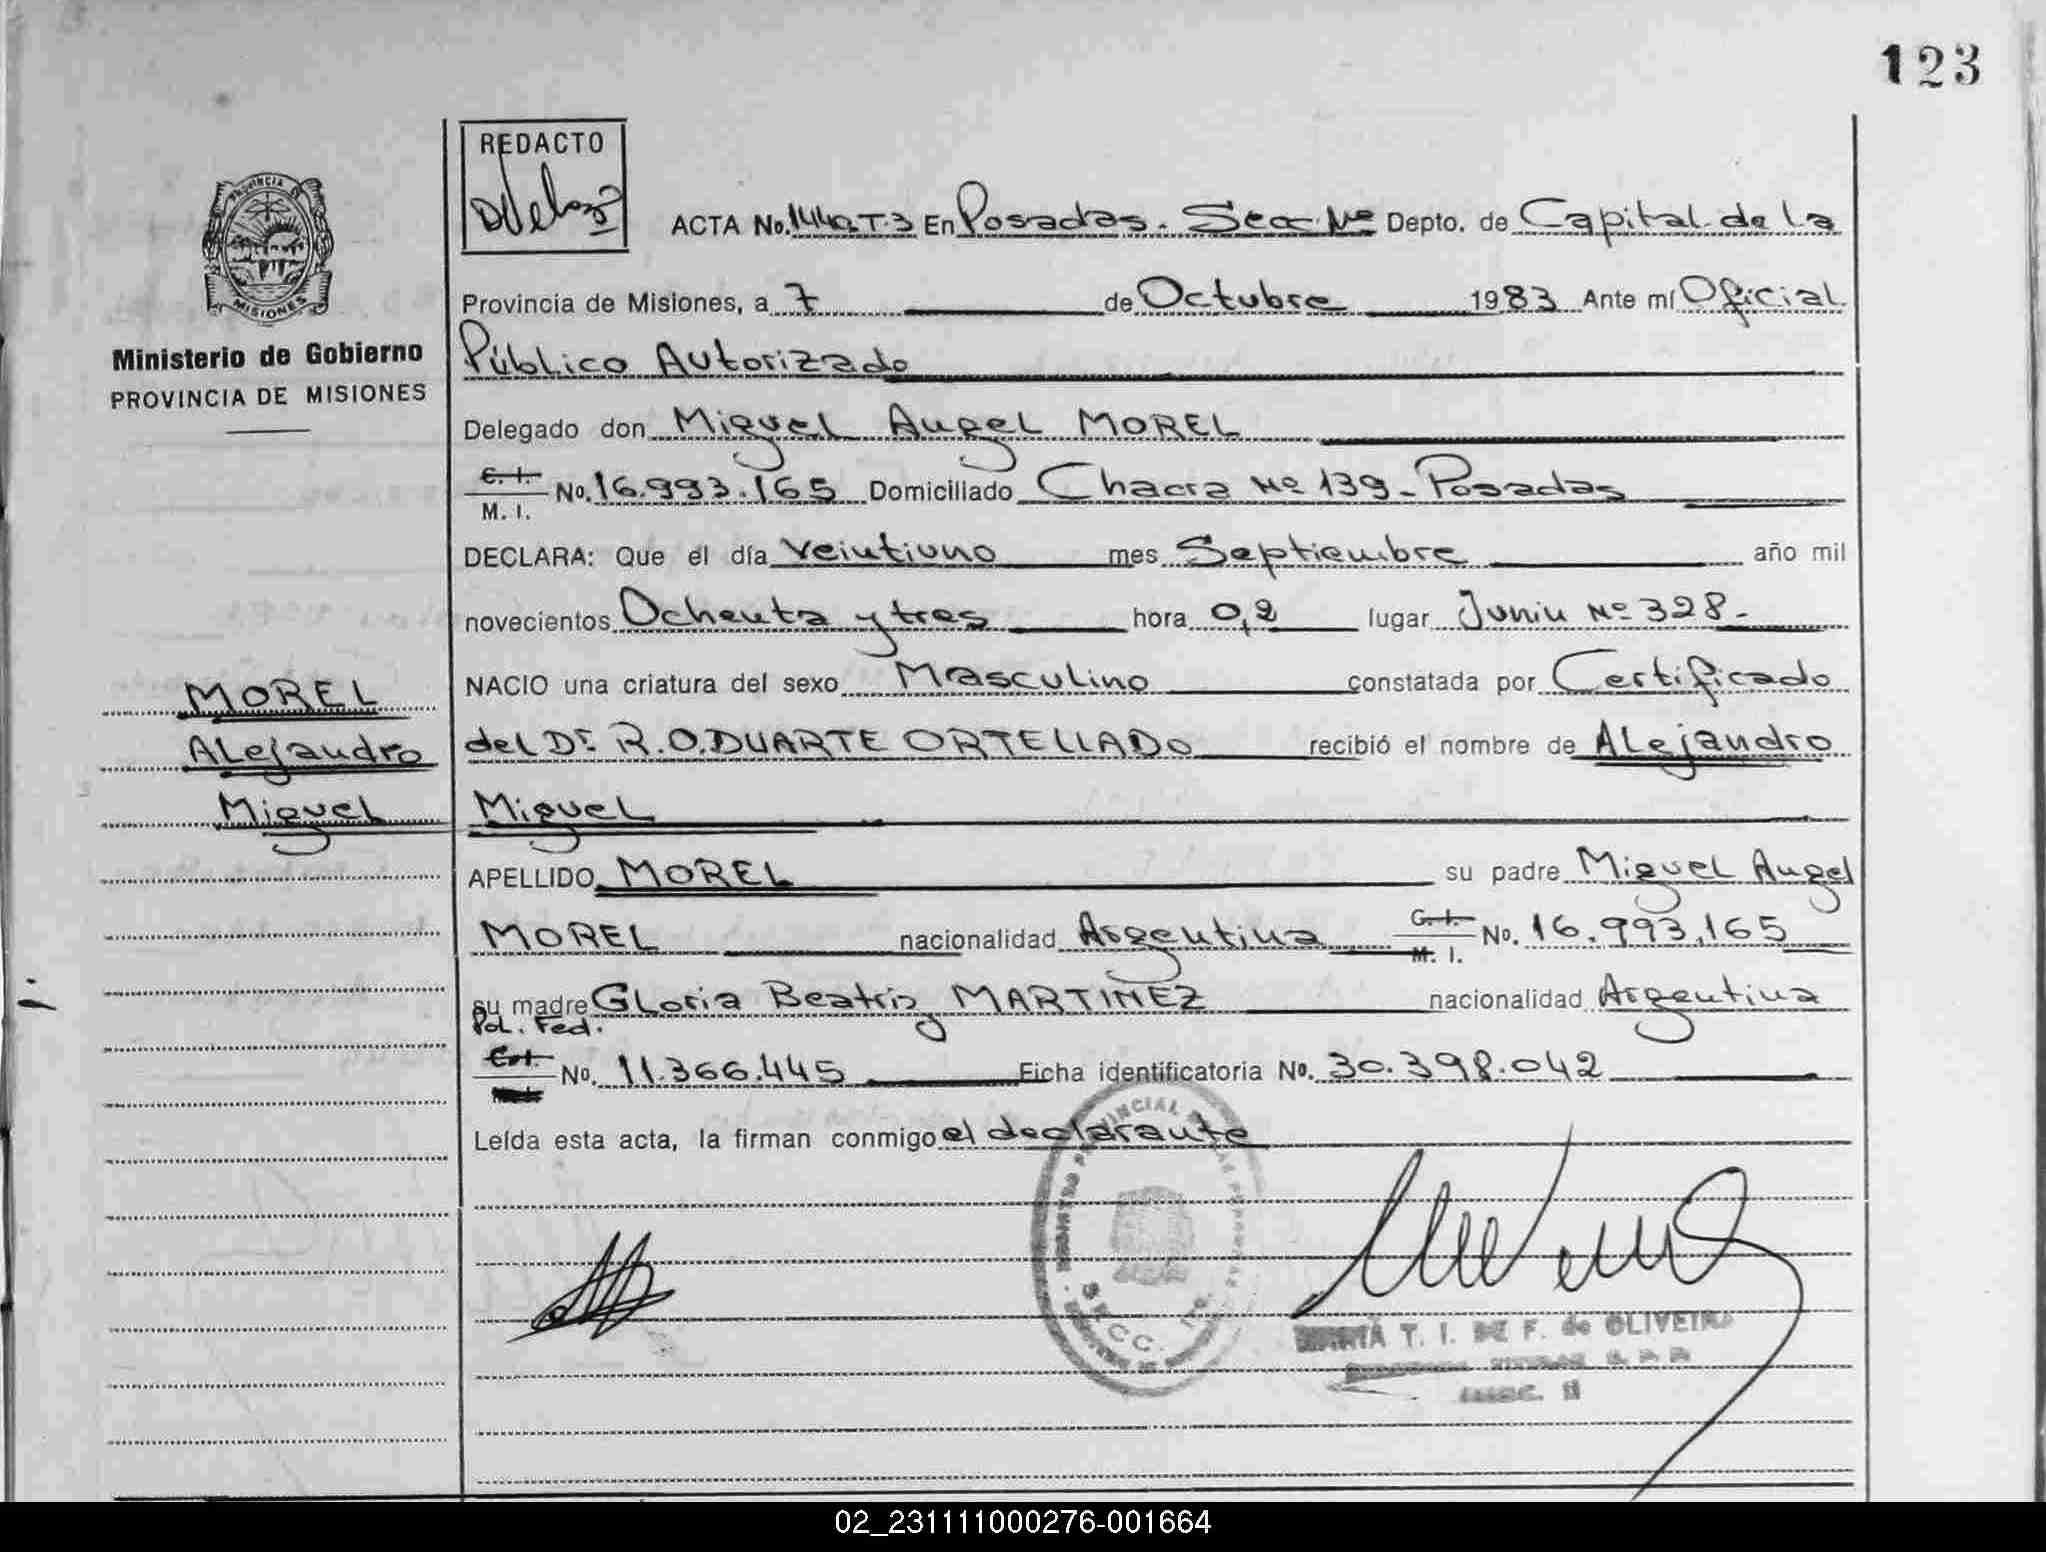 123
REDACTO
ACTA No. 1440, T.3 En Posadas. Secc. 1ª Depto. de Capital de la
PROVINCIA DE
MISIONES
Provincia de Misiones, a 7 de Octubre 1983 Ante mí Oficial
Ministerio de Gobierno
PROVINCIA DE MISIONES
Público Autorizado
Delegado don Miguel Angel MOREL
C. I.
M. I. No. 16.993.165 Domiciliado Chacra Nº 139 - Posadas
DECLARA: Que el día veintiuno mes Septiembre año mil
novecientos Ochenta y tres hora 0,2 lugar Junin Nº 328-
NACIO una criatura del sexo Masculino constatada por Certificado
del Dr. R.O. DUARTE ORTELLADO recibió el nombre de ALejandro
Miguel
MOREL
ALejandro
Miguel
APELLIDO MOREL su padre Miguel Angel
MOREL nacionalidad Argentina C. I. M. I. No. 16.993.165
su madre GLoria Beatriz MARTINEZ nacionalidad Argentina
Pol. Fed.
No. 11.366.445 Ficha identificatoria No. 30.398.042
Leída esta acta, la firman conmigo el declarante
T. I. DE F. de OLIVEIRA
02_231111000276-001664